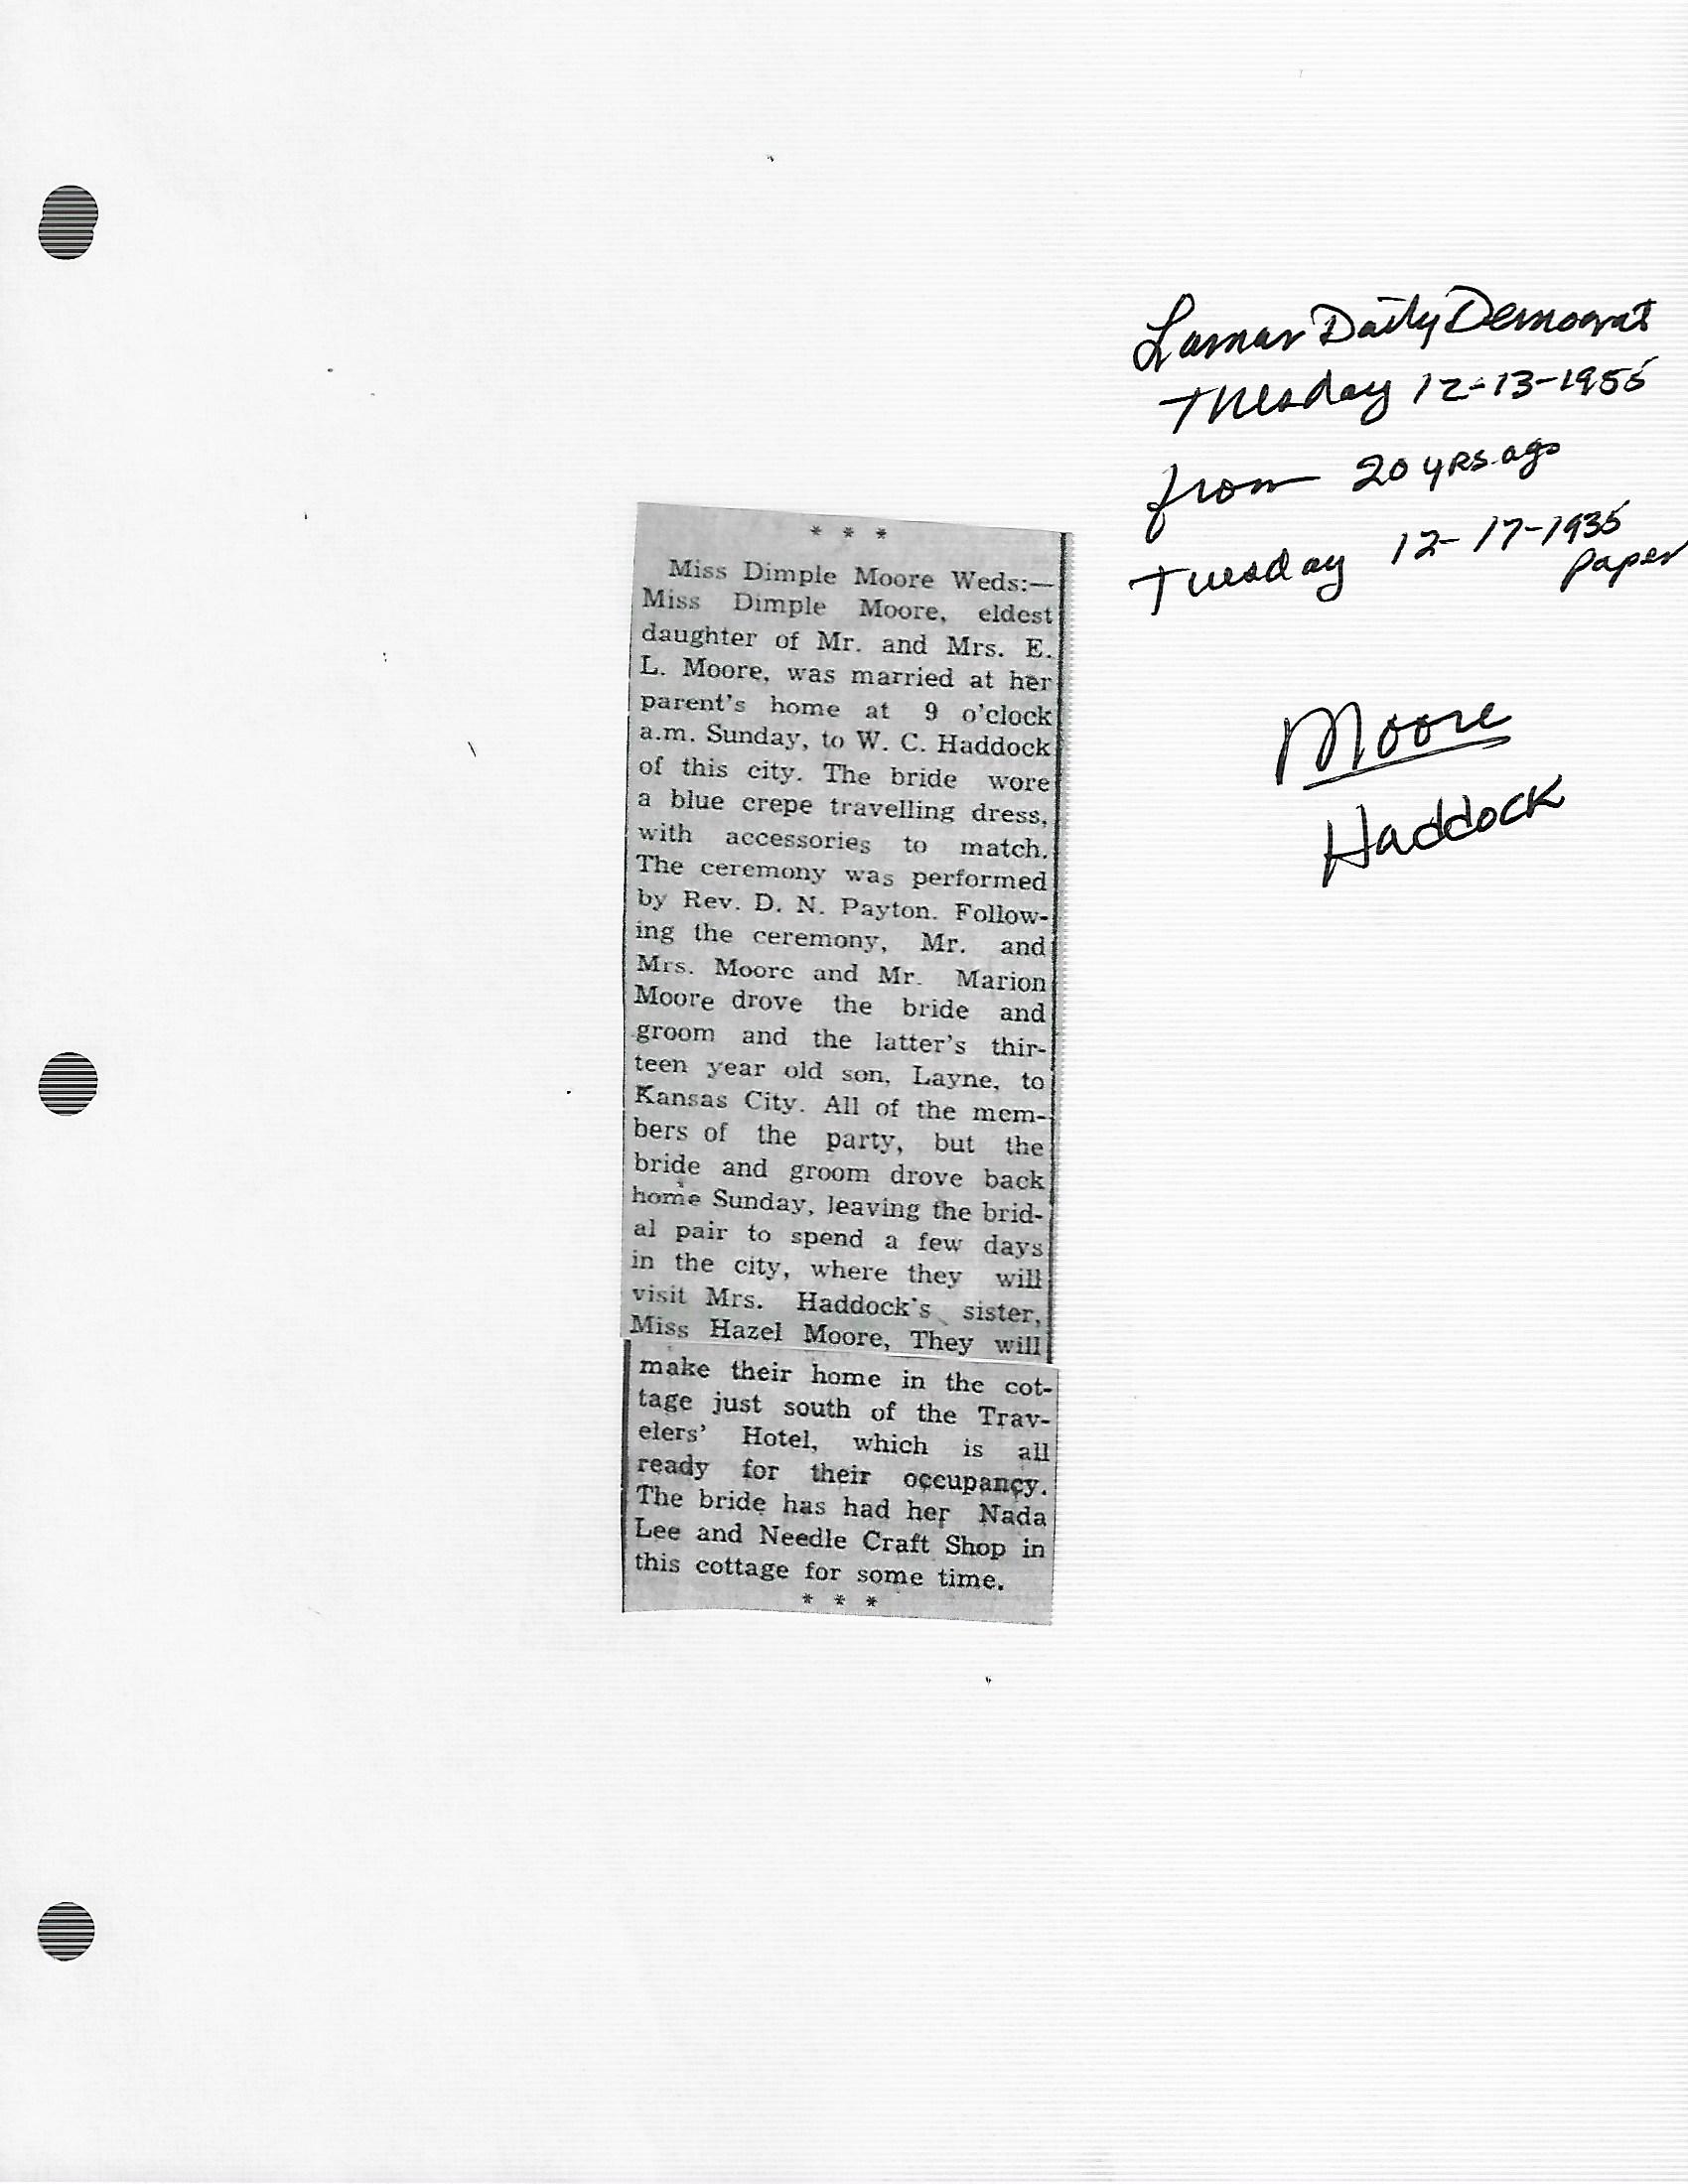 Lamar Daily Democrat
Tuesday 12-13-1955
from 20 yrs. ago
Tuesday 12-17-1935
paper
Moore
Haddock
* * *
Miss Dimple Moore Weds:—
Miss Dimple Moore, eldest
daughter of Mr. and Mrs. E.
L. Moore, was married at her
parent's home at 9 o'clock
a.m. Sunday, to W. C. Haddock
of this city. The bride wore
a blue crepe travelling dress,
with accessories to match.
The ceremony was performed
by Rev. D. N. Payton. Follow-
ing the ceremony, Mr. and
Mrs. Moore and Mr. Marion
Moore drove the bride and
groom and the latter's thir-
teen year old son, Layne, to
Kansas City. All of the mem-
bers of the party, but the
bride and groom drove back
home Sunday, leaving the brid-
al pair to spend a few days
in the city, where they will
visit Mrs. Haddock's sister,
Miss Hazel Moore, They will
make their home in the cot-
tage just south of the Trav-
elers' Hotel, which is all
ready for their occupancy.
The bride has had her Nada
Lee and Needle Craft Shop in
this cottage for some time.
* * *